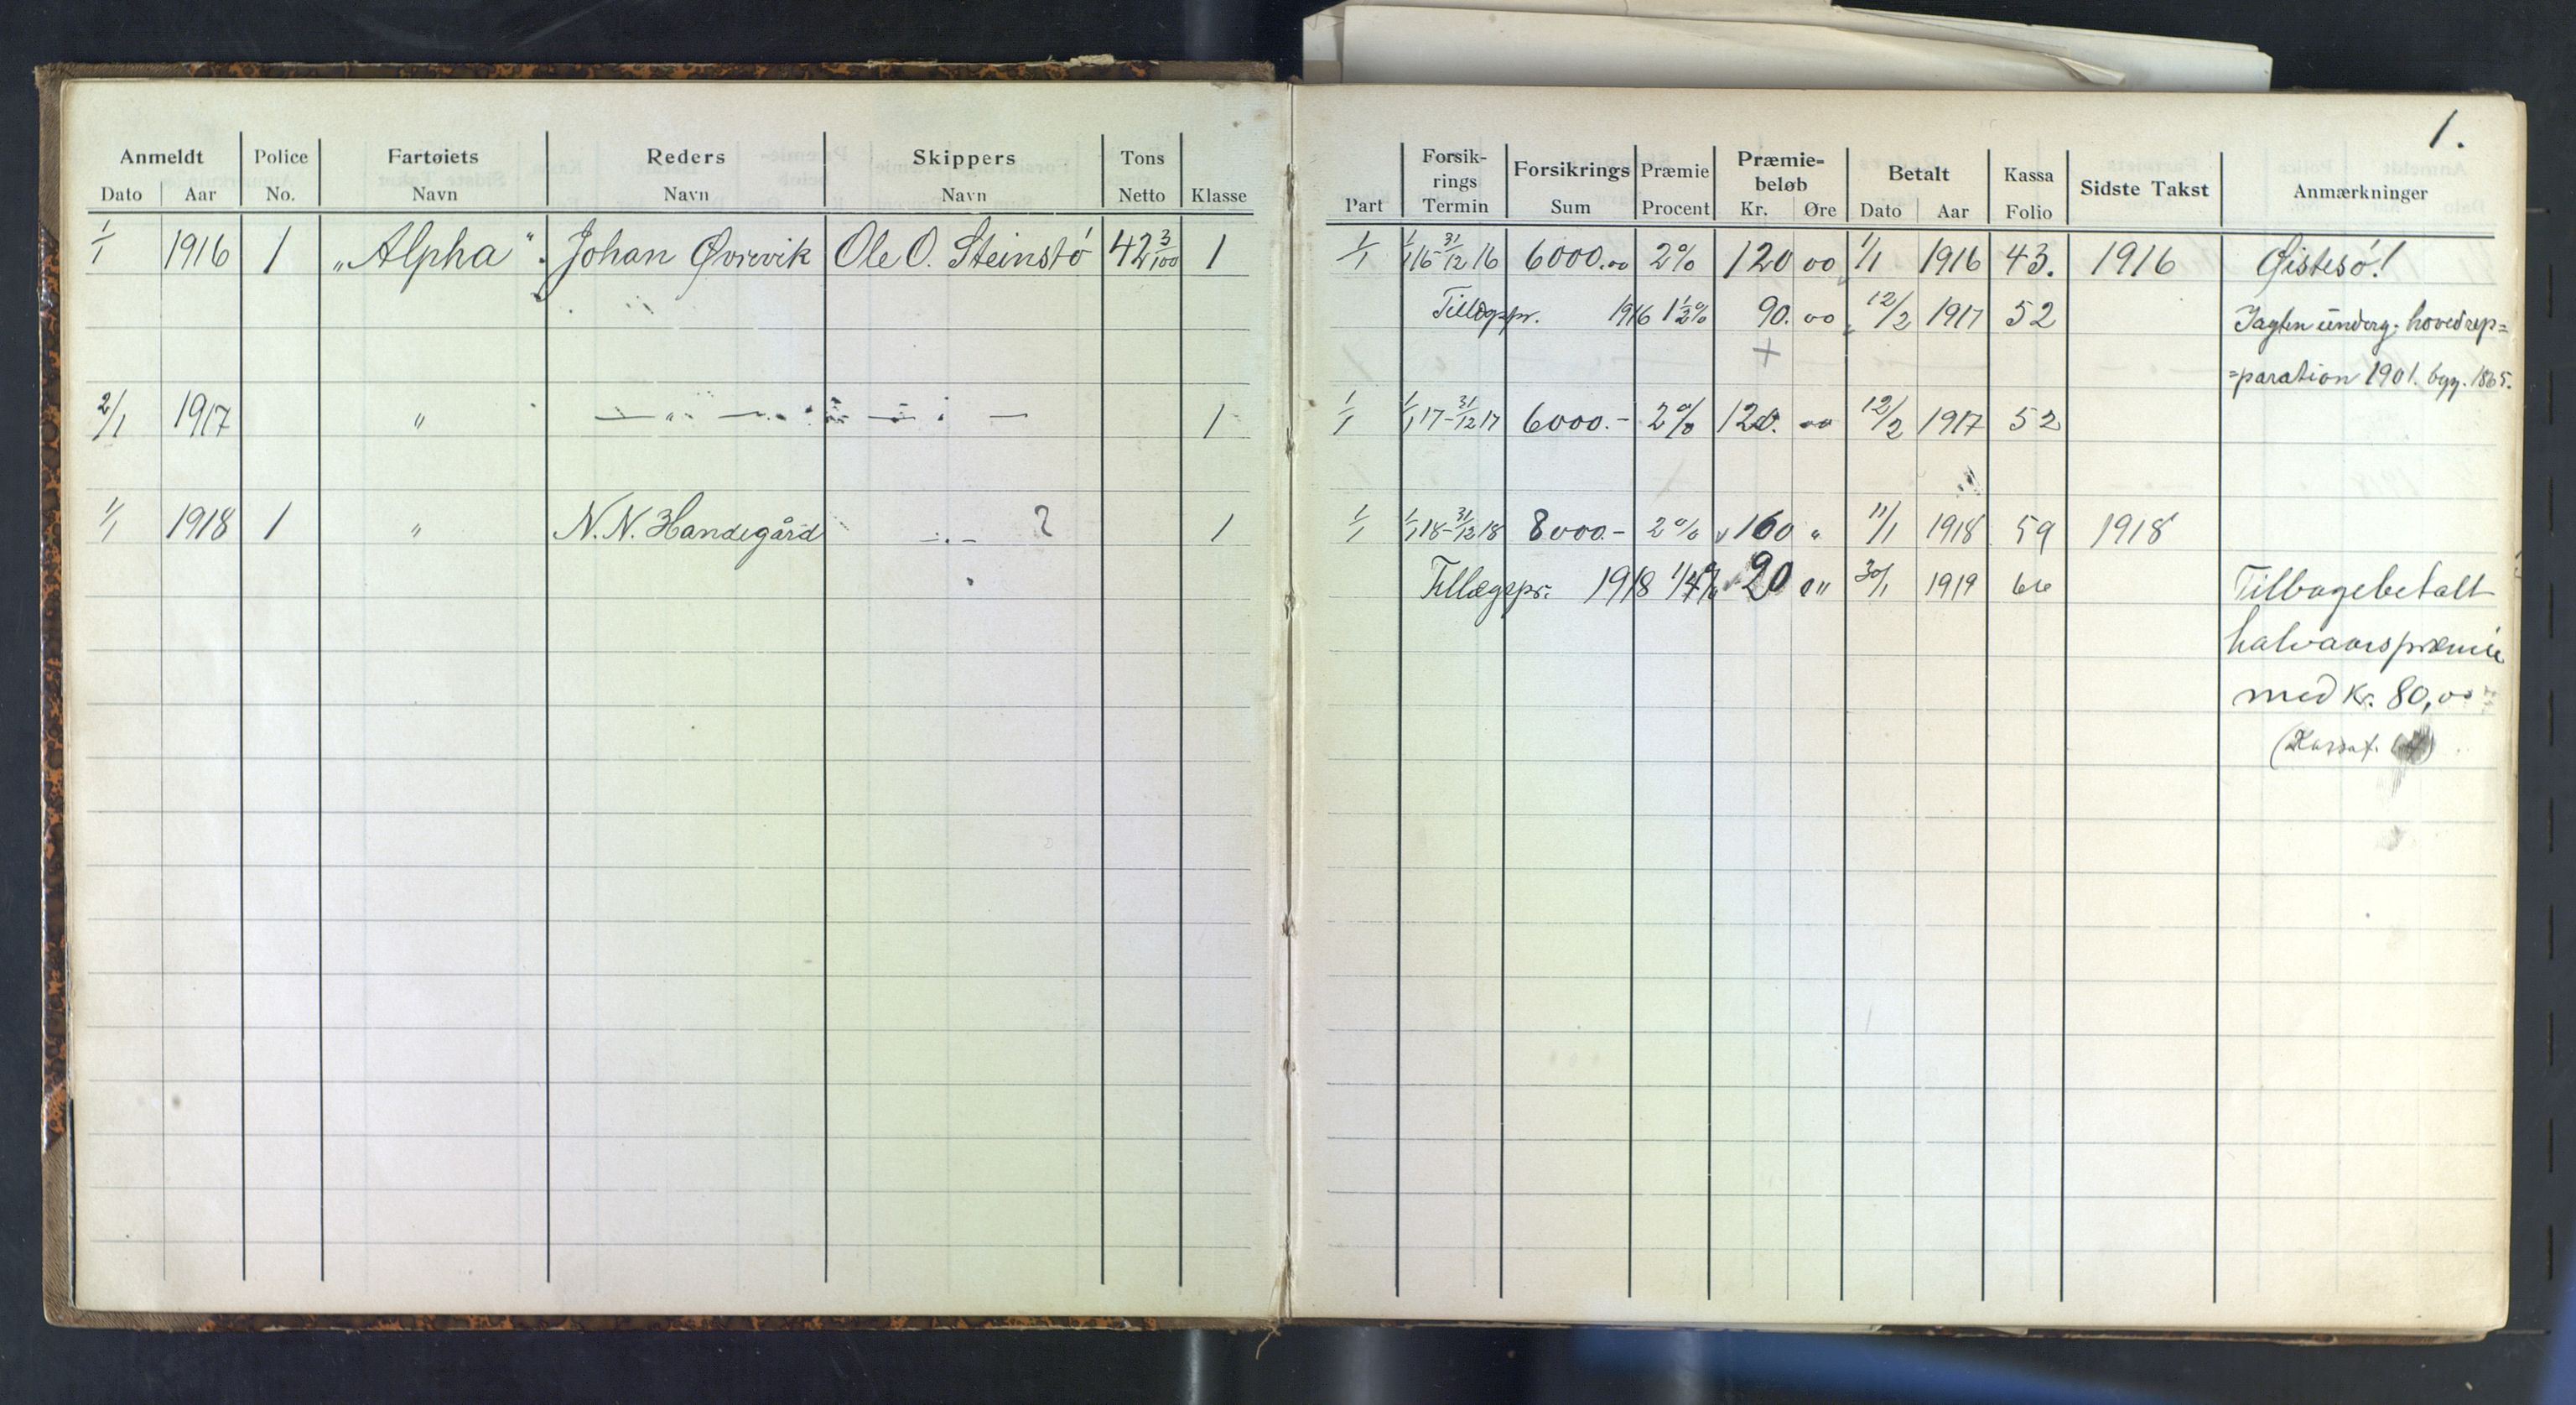 1.
Anmeldt Police Fartøiets Reders Skippers Tons
Dato Aar No. Navn Navn Navn Netto Klasse
Part Forsik-rings Termin Forsikrings Sum Præmie Procent Præmie-beløb Kr. Øre Betalt Dato Aar Kassa Folio Sidste Takst Anmærkninger
1/1 1916 1 „Alpha". Johan Øvrevik Ole O. Steinstö 42 3/100 1 1/1 1/1 16-31/12 16 6000.00 2% 120 00 1/1 1916 43. 1916 Øistesö!
Tillægspr. 1916 1½% 90. 00 12/2 1917 52 Jagten underg. hovedrep=
+ =paration 1901. bygg. 1865.
2/1 1917 " — " — " — " — 1 1/1 1/1 17-31/12 17 6000.- 2% 120. 00 12/2 1917 52
1/1 1918 1 " N.N. Handegård -"- ? 1 1/1 1/1 18-31/12 18 8000.- 2% 160 " 11/1 1918 59 1918
Tillægspr. 1918 1/4% 20 " 30/1 1919 66 Tilbagebetalt
halvaarspræmie
med Kr. 80,00
(Kassaf.